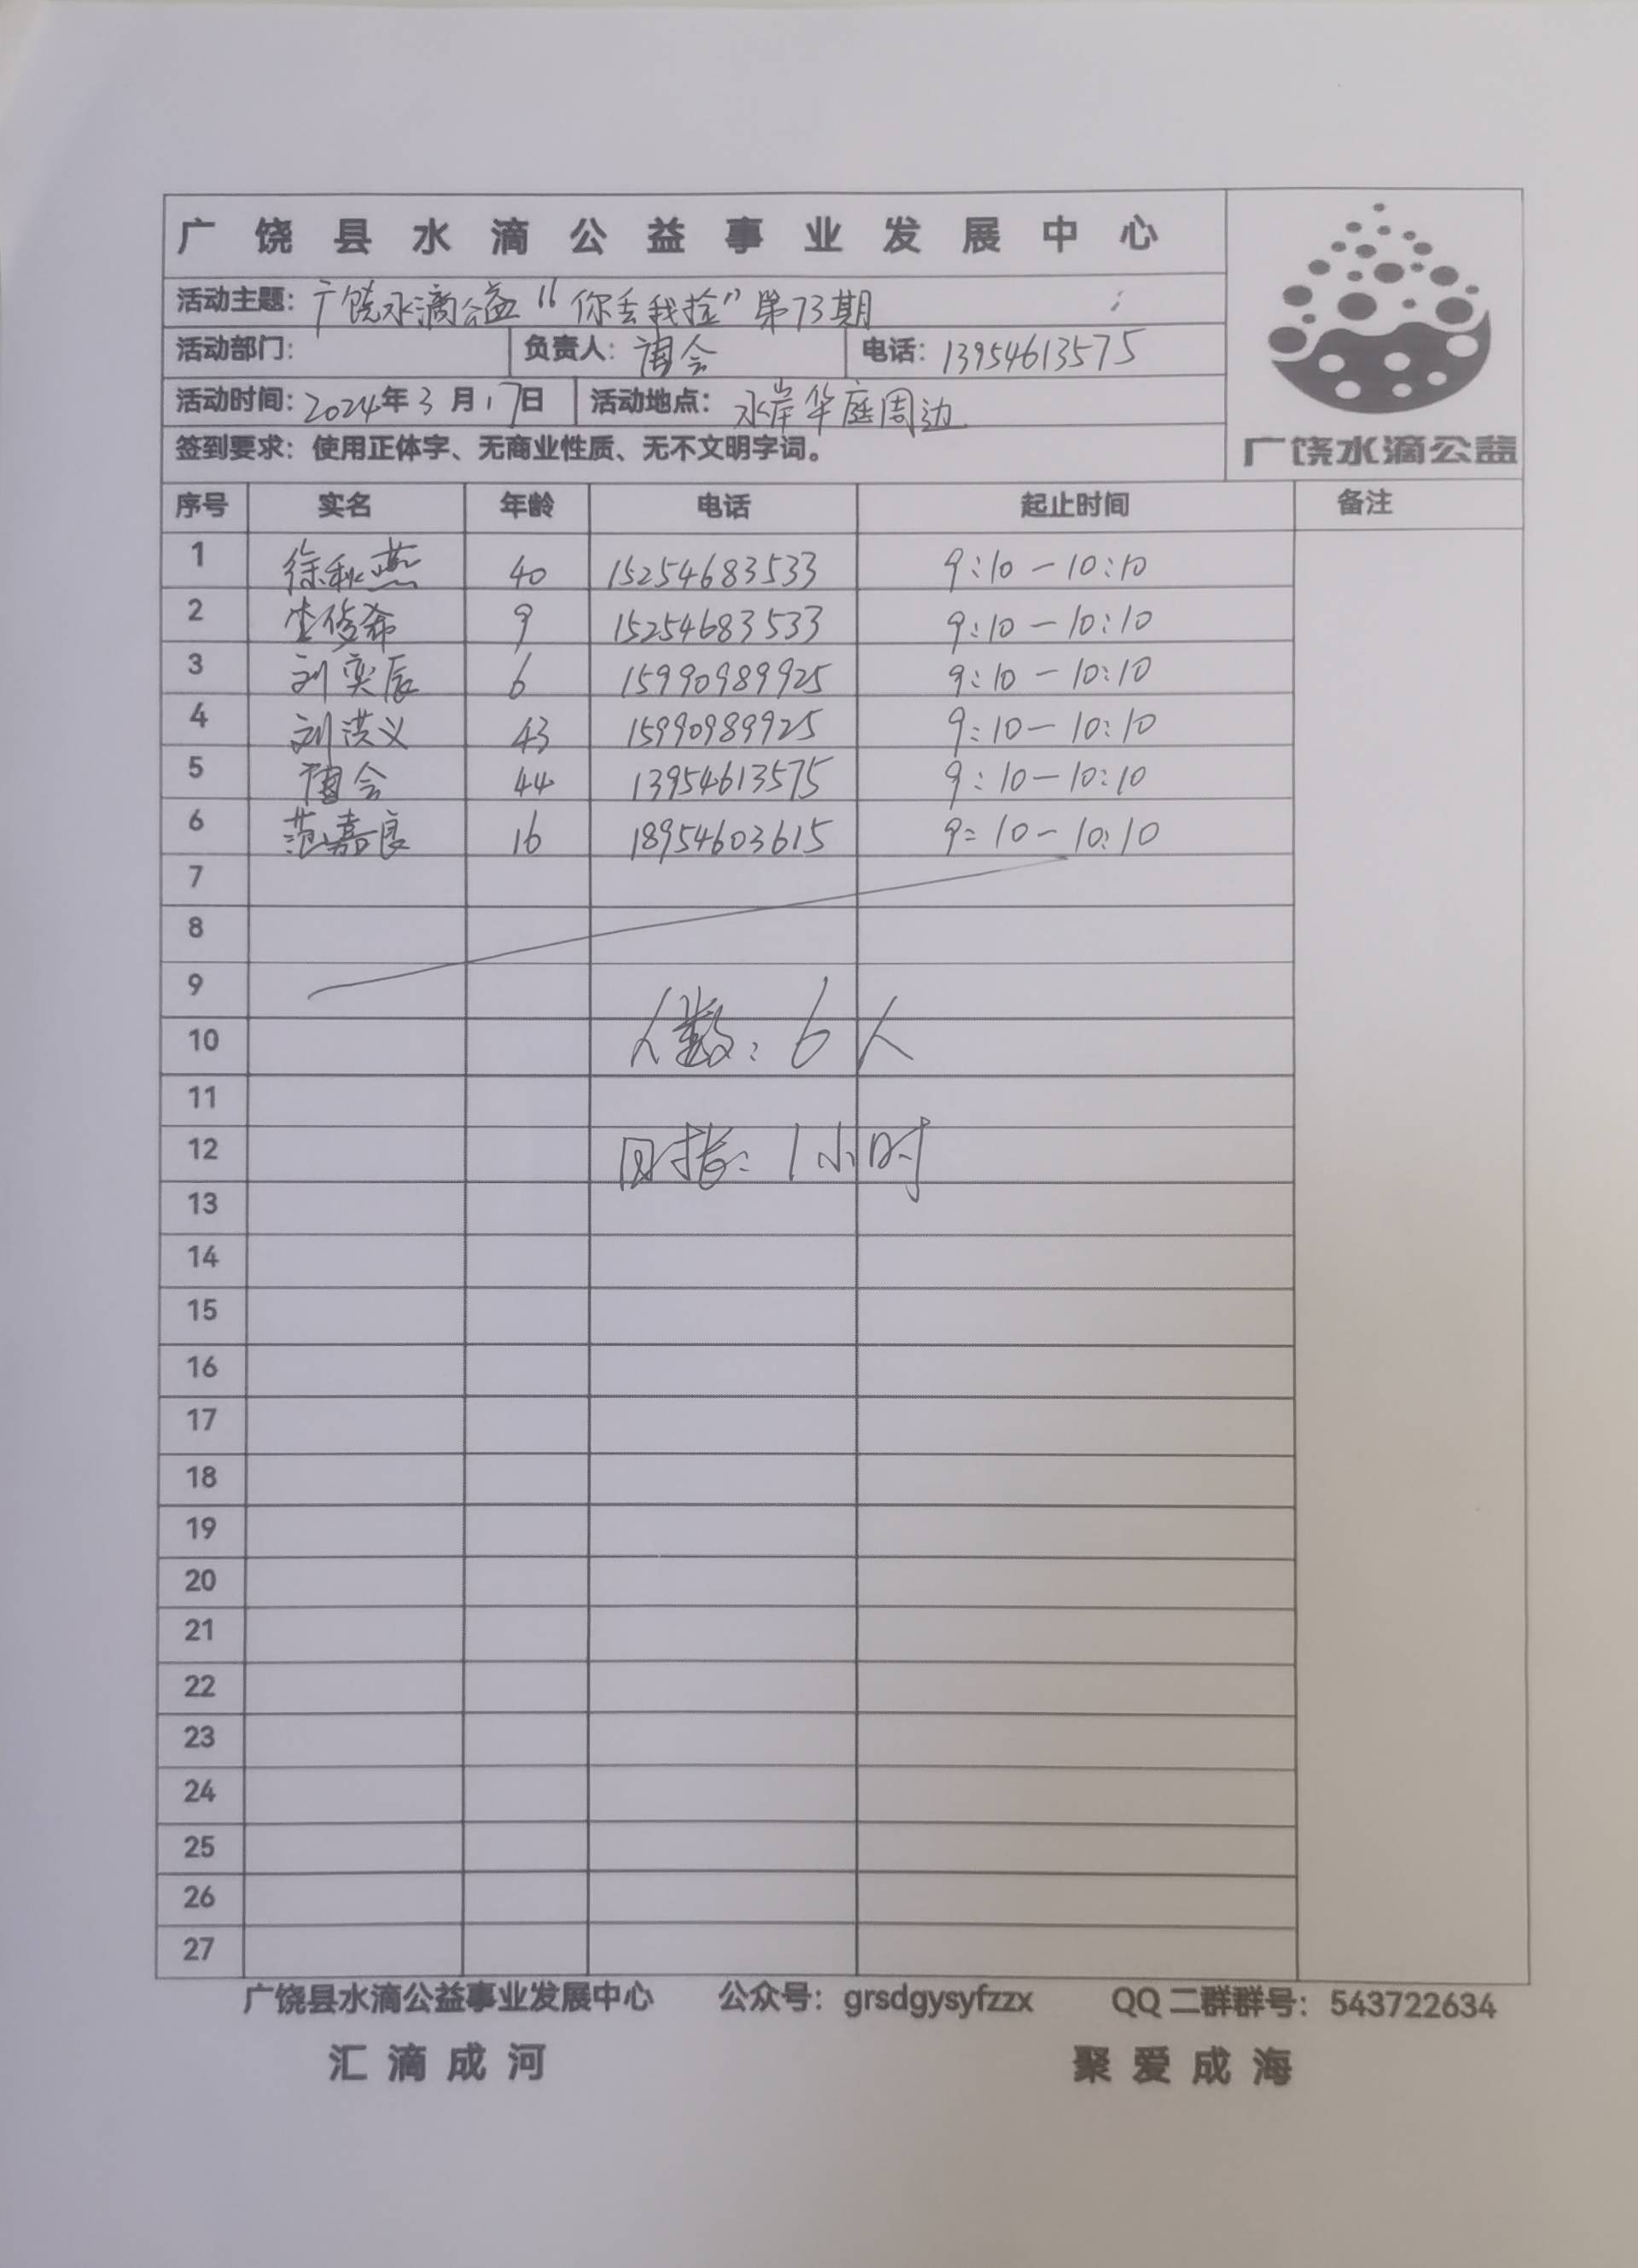 广饶县水滴公益事业发展中心
活动主题：广饶水滴公益“你丢我捡”第73期
活动部门： 负责人：会 电话：13954613575
活动时间：2024年3月17日 活动地点：水岸华庭周边
签到要求：使用正体字、无商业性质、无不文明字词。
广饶水滴公益
序号 实名 年龄 电话 起止时间 备注
1 徐秋燕 40 15254683533 9:10-10:10
2 李俊希 9 15254683533 9:10-10:10
3 刘奕辰 6 15990989925 9:10-10:10
4 刘洪义 43 15990989925 9:10-10:10
5 会 44 13954613575 9:10-10:10
6 范嘉良 16 18954603615 9:10-10:10
7
8
9
人数：6人
10
11
12 时长：1小时
13
14
15
16
17
18
19
20
21
22
23
24
25
26
27
广饶县水滴公益事业发展中心 公众号：grsdgysyfzzx QQ二群群号：543722634
汇滴成河 聚爱成海